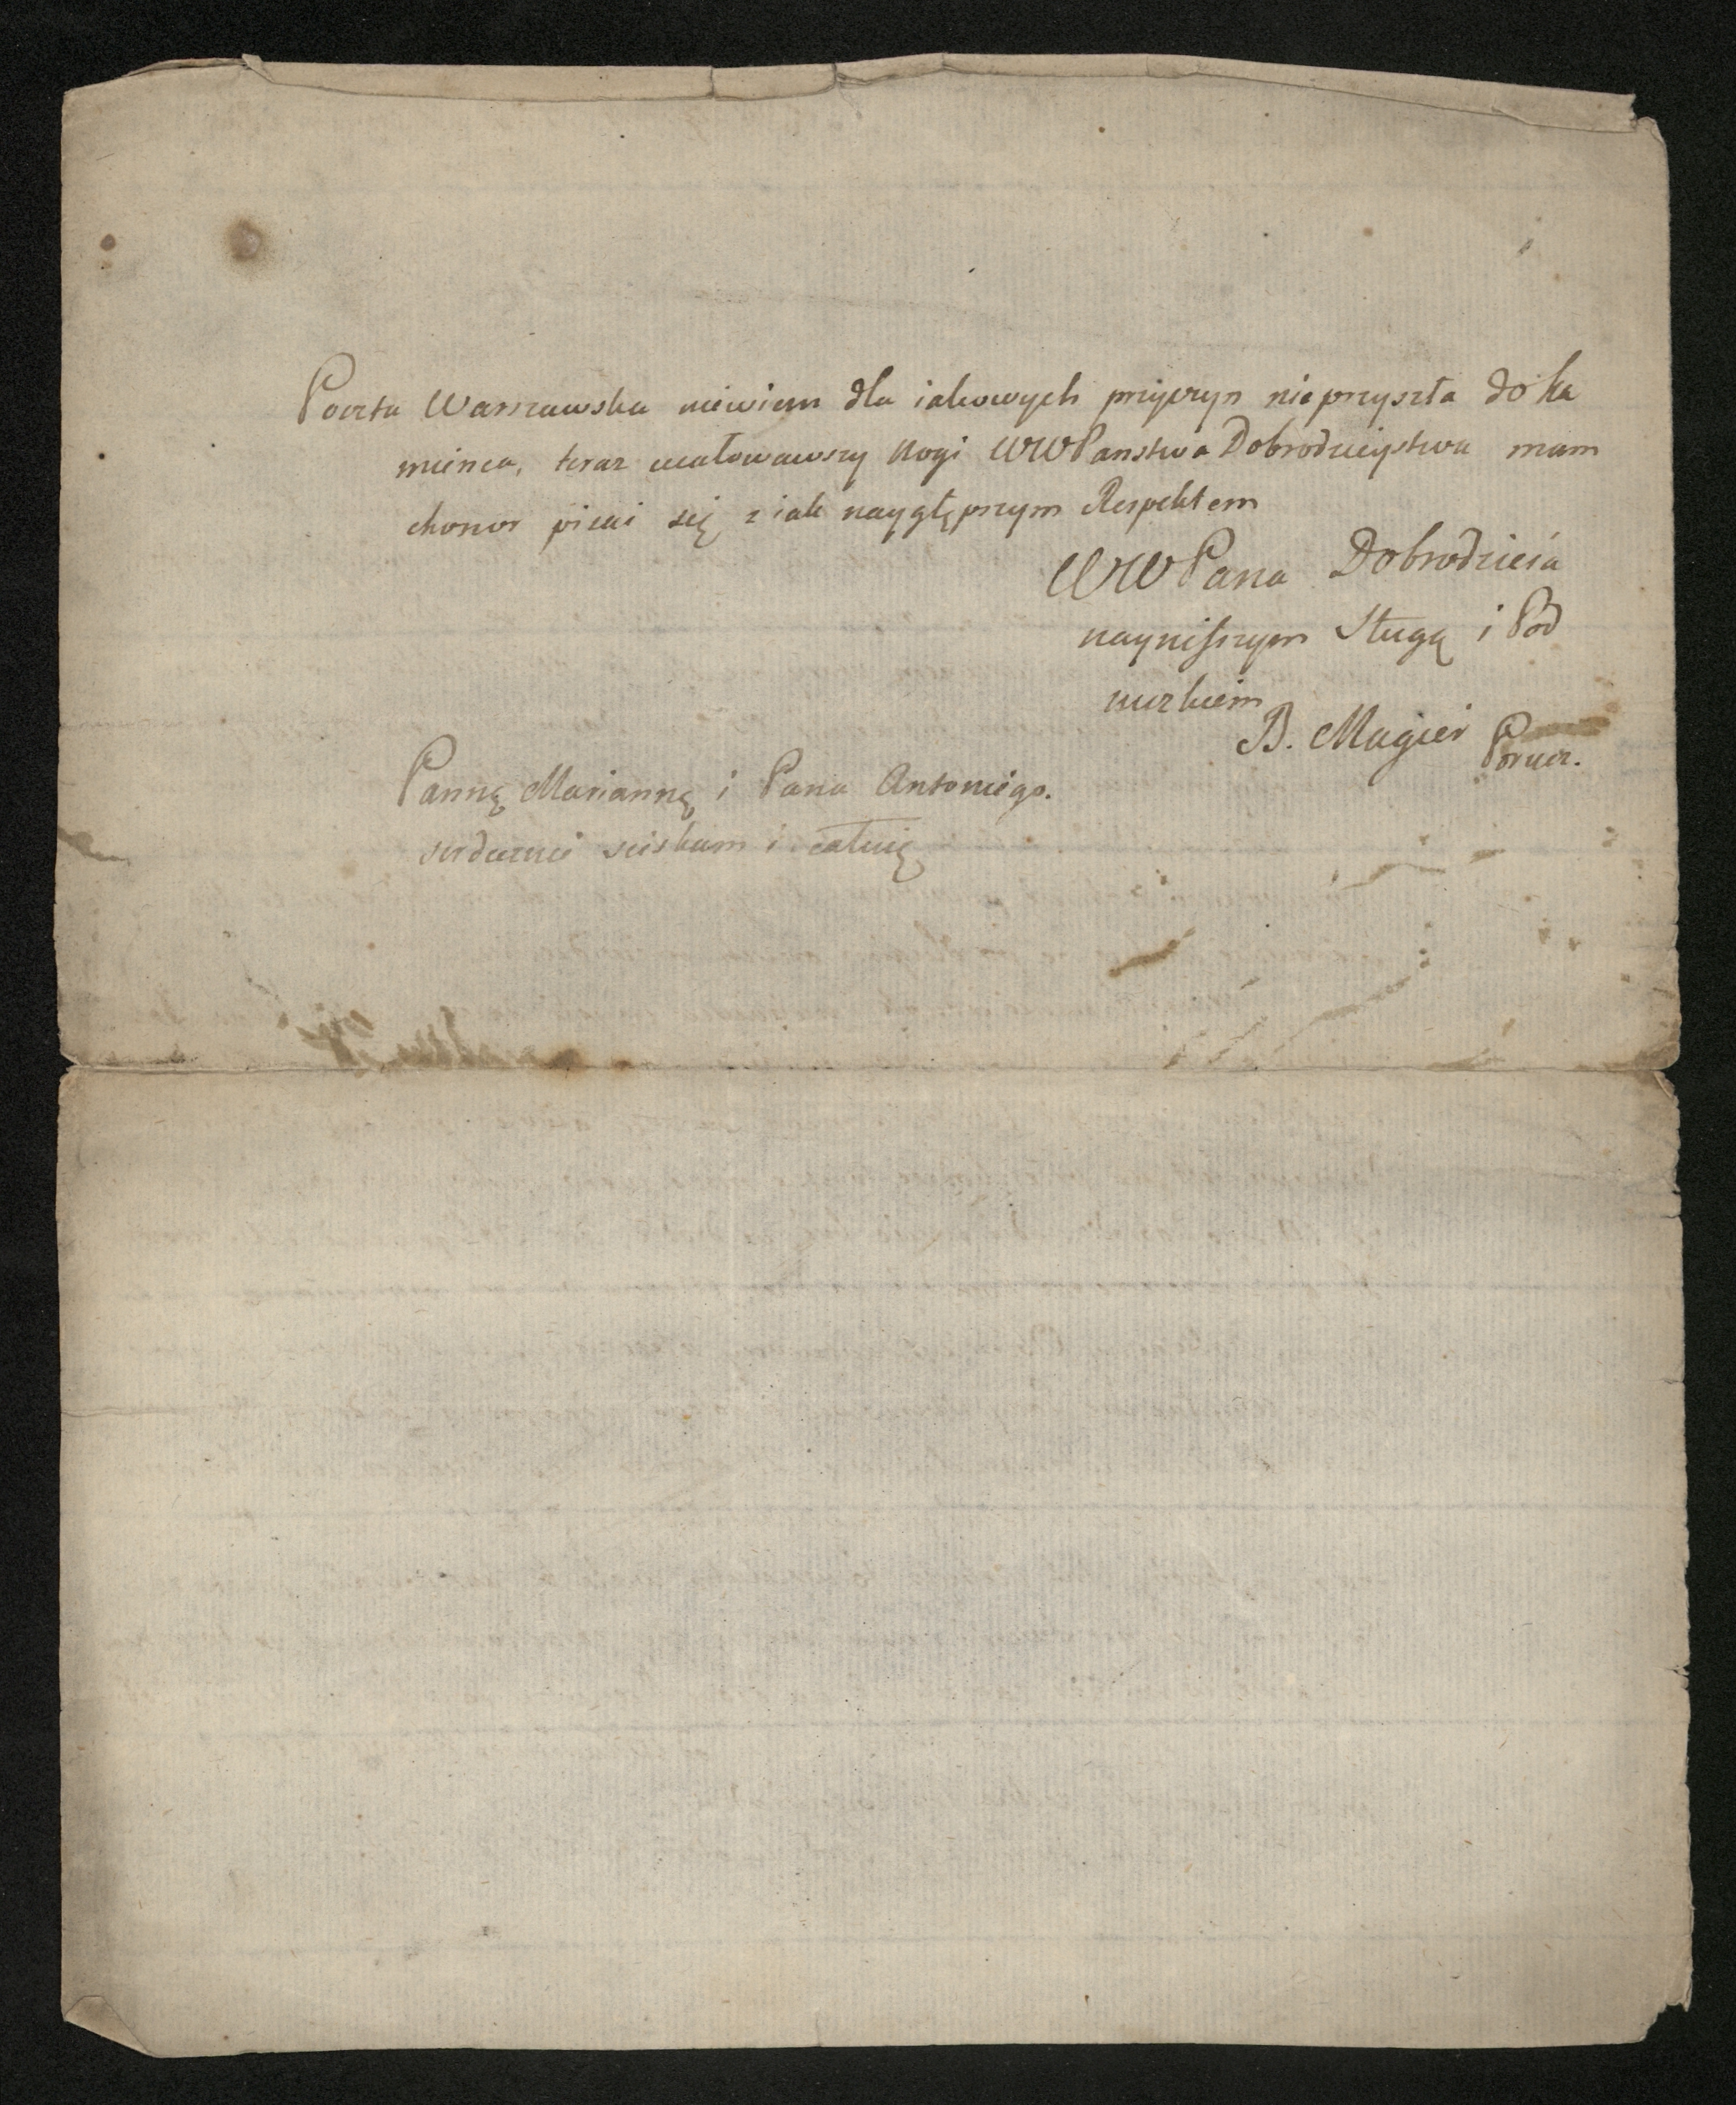 Poczta Warszawska niewiem dla iakowych przyczyn nieprzyszła do Ka
mienca, teraz ucałowawszy Nogi WWPanstwa Dobrodzieystwa mam
chonor pisać się z iak naygłępszym Respektem
WWPana Dobrodzieia
nayniższym Sługą i Pod
nuzkiem
B. Magier Porucz.
Pannę Mariannę i Pana Antoniego.
serdecznie sciskam i całuię